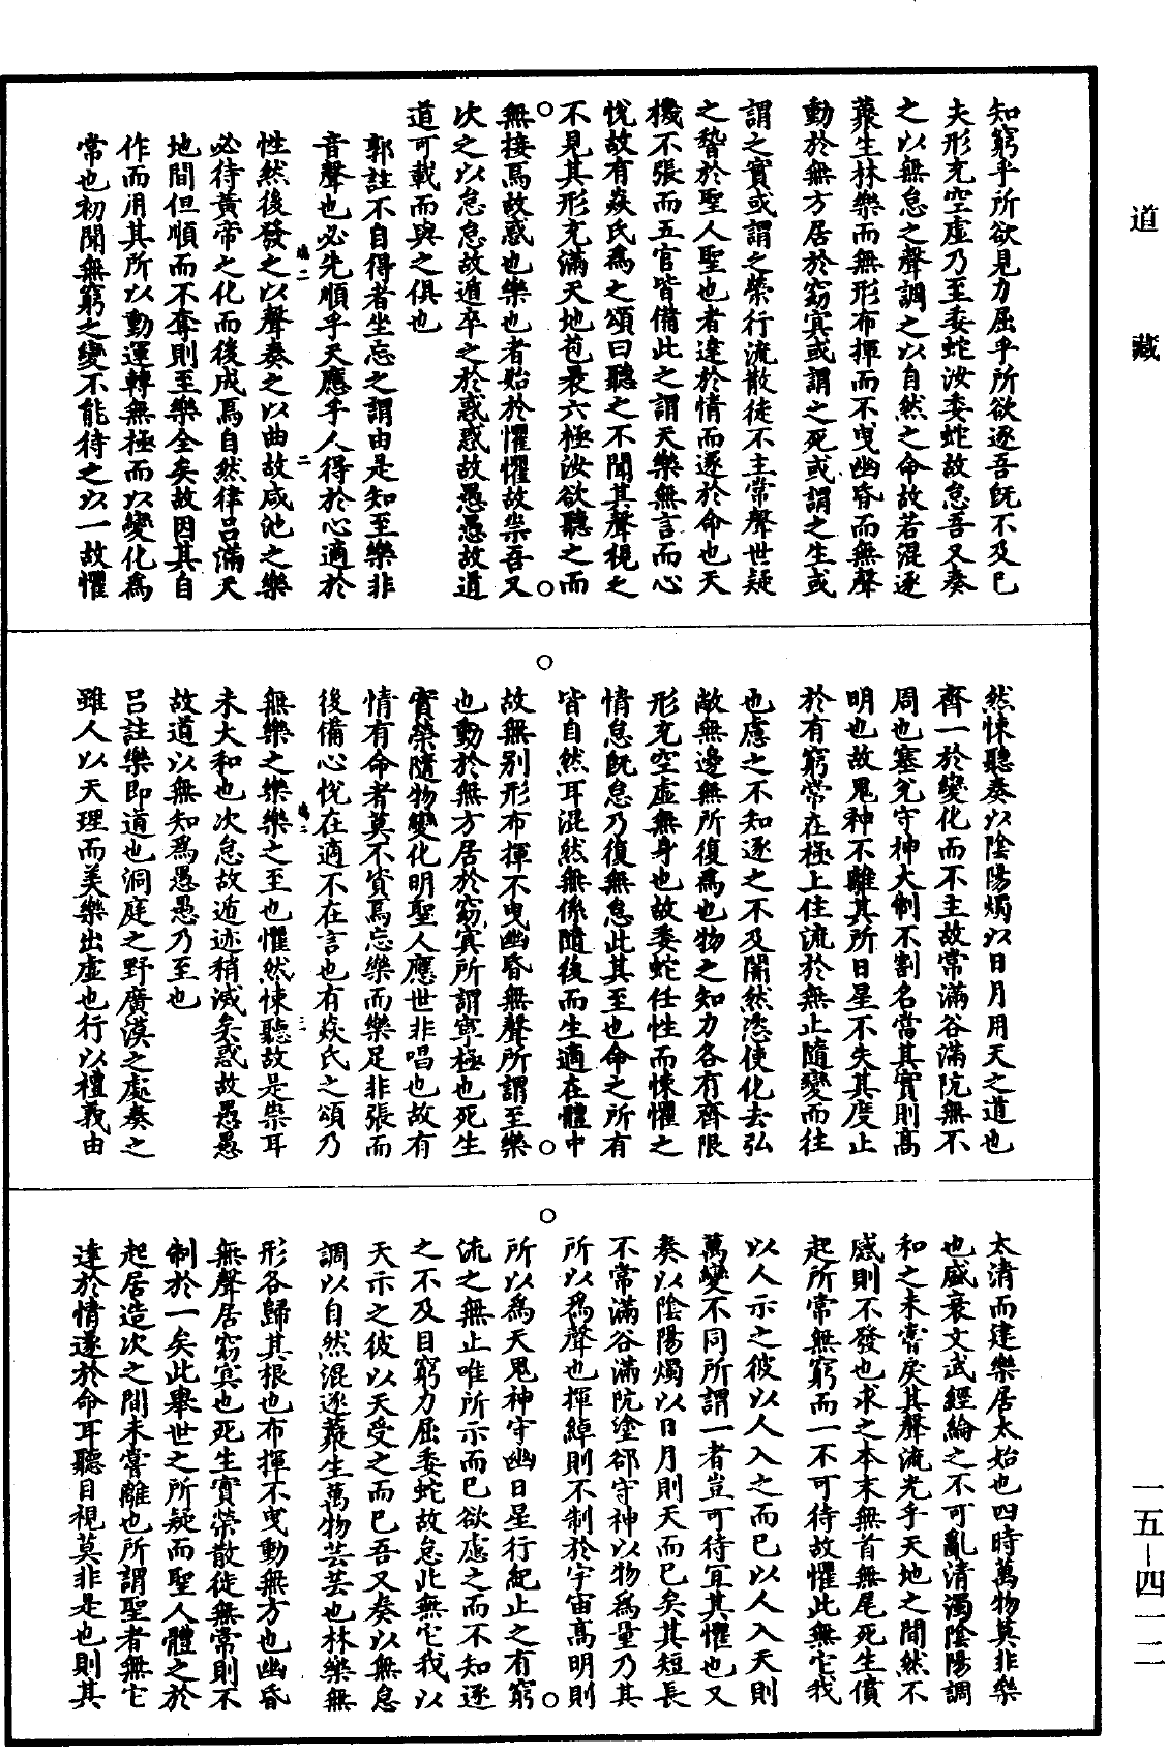 知窮乎所欲見力屈乎所欲逐吾旣不及已
夫形充空虛乃至委蛇汝委蛇故怠吾又奏
之以無怠之聲調之以自然之命故若混逐
藂生林樂而無形布揮而不曳幽昏而無聲
動於無方居於窈㝠或謂之死或謂之生或
謂之實或謂之榮行流散徒不主常聲世疑
之稽於聖人聖也者達於情而遂於命也天
機不張而五官皆備此之謂天樂無言而心
悅故有焱氏爲之頌曰聽之不聞其聲視之
不見其形充滿天地苞裹六極汝欲聽之而
無接焉故惑也樂也者始於懼懼故祟吾又
次之以怠怠故遁卒之於惑惑故愚愚故道
道可載而與之俱也
郭註不自得者坐忘之謂由是知至樂非
音聲也必先順乎天應乎人得於心適於
性然後發之以聲奏之以曲故咸池之樂
必待黃帝之化而後成焉自然律呂滿天
地間但順而不奪則至樂全矣故因其自
作而用其所以動運轉無極而以變化爲
常也初聞無窮之變不能待之以一故懼
然悚聽奏以陰陽燭以日月用天之道也
齊一於變化而不主故常滿谷滿阬無不
周也塞兌守神大制不割名當其實則高
明也故鬼神不離其所日星不失其度止
於有窮常在極上住流於無止隨變而往
也慮之不知逐之不及闇然恣使化去弘
敞無邊無所復爲也物之知力各有齊限
形充空虛無身也故委蛇任性而悚懼之
情怠旣怠乃復無怠此其至也命之所有
皆自然耳混然無係隨後而生適在體中
故無别形布揮不曳幽昏無聲所謂至樂
也動於無方居於窈㝠所謂寧極也死生
實榮隨物變化明聖人應世非唱也故有
情有命者莫不資焉忘樂而樂足非張而
後備心悅在適不在言也有焱氏之頌乃
無樂之樂樂之至也懼然悚聽故是祟耳
未大和也次怠故遁迹稍滅矣惑故愚愚
故道以無知爲愚愚乃至也
呂註樂即道也洞庭之野廣漠之處奏之
雖人以天理而美樂出虛也行以禮義由
太清而建樂居太始也四時萬物莫非樂
也盛衰文武經綸之不可亂清濁陰陽調
和之未嘗戾其聲流光乎天地之間然不
感則不發也求之本末無首無尾死生僨
起所常無窮而一不可待故懼此無它我
以人示之彼以人入之而已以人入天則
萬變不同所謂一者豈可待宜其懼也又
奏以陰陽燭以日月則天而已矣其短長
不常滿谷滿阬塗郤守神以物爲量乃其
所以爲聲也揮綽則不制於宇宙高明則
所以爲天鬼神守幽日星行紀止之有窮
流之無止唯所示而已欲慮之而不知逐
之不及目窮力屈委蛇故怠此無它我以
天示之彼以天受之而已吾又奏以無怠
調以自然混逐藂生萬物芸芸也林樂無
形各歸其根也布揮不曳動無方也幽昏
無聲居窈㝠也死生實榮散徙無常則不
制於一矣此舉世之所疑而聖人體之於
起居造次之間未嘗離也所謂聖者無它
達於情遂於命耳聽目視莫非是也則其
道藏
一五—四一二